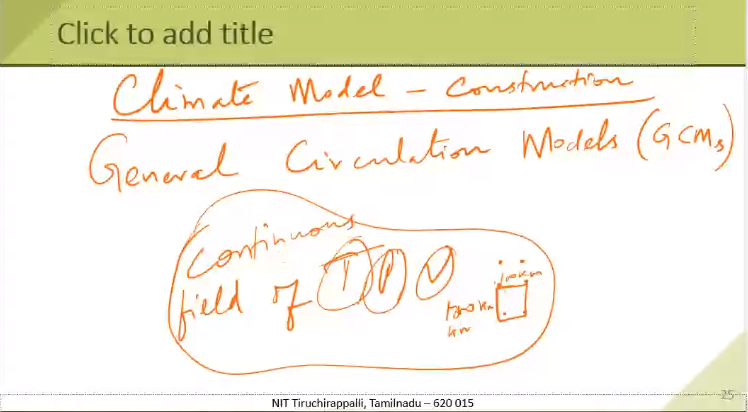 Click to add title
Climate Model - Construction
General Circulation Models (GCMs)
Continuous
field of T P V
100 km
km
NIT Tiruchirappalli, Tamilnadu – 620 015
25